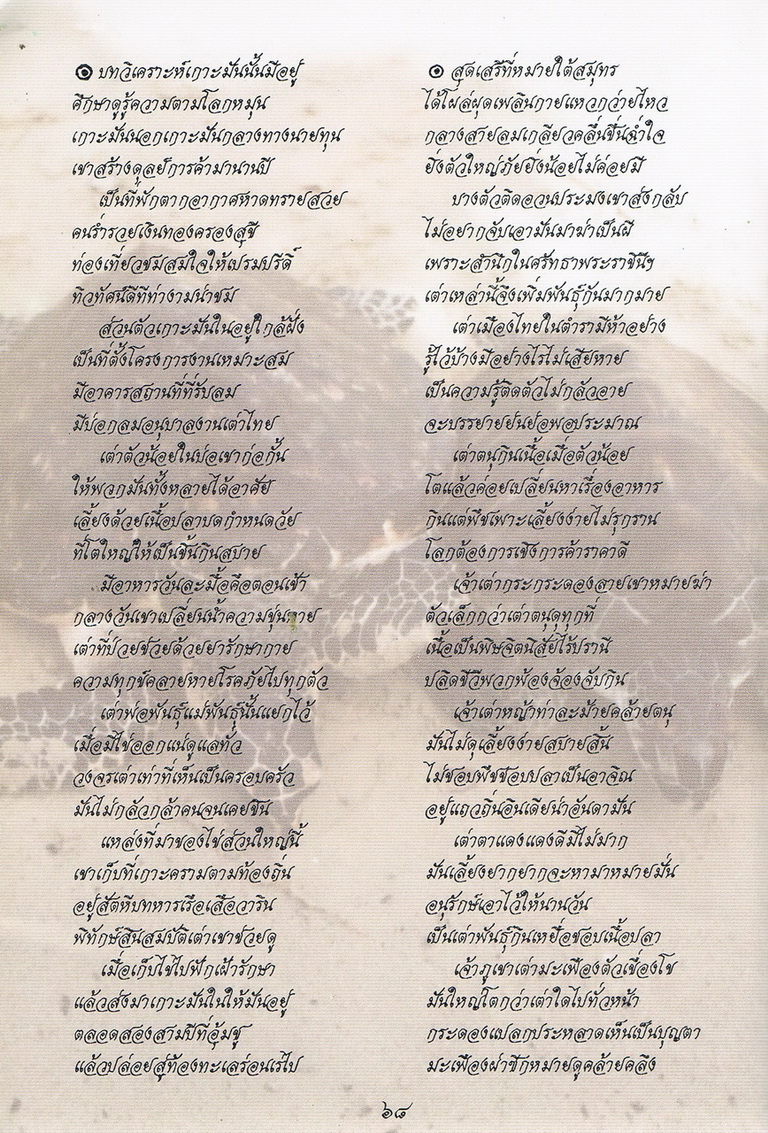 ๏ บทวิเคราะห์เกาะมันนั้นมีอยู่
ศึกษาดูรู้ความตามโลกหมุน
เกาะมันนอกเกาะมันกลางทางนายทุน
เขาสร้างดุลย์การค้ามานานปี
เป็นที่พักตากอากาศหาดทรายสวย
คนร่ำรวยเงินทองครองสุขี
ท่องเที่ยวชมสมใจให้เปรมปรีดิ์
ทิวทัศน์ดีทีท่างามน่าชม
ส่วนตัวเกาะมันในอยู่ใกล้ฝั่ง
เป็นที่ตั้งโครงการงานเหมาะสม
มีอาคารสถานที่ที่รับลม
มีบ่อกลมอนุบาลงานเต่าไทย
เต่าตัวน้อยในบ่อเขาก่อกั้น
ให้พวกมันทั้งหลายได้อาศัย
เลี้ยงด้วยเนื้อปลาบดกำหนดวัย
ที่โตใหญ่ให้เป็นชิ้นกินสบาย
มีอาหารวันละมื้อคือตอนเช้า
กลางวันเขาเปลี่ยนน้ำความขุ่นหาย
เต่าที่ป่วยช่วยด้วยยารักษากาย
ความทุกข์คลายหายโรคภัยไปทุกตัว
เต่าพ่อพันธุ์แม่พันธุ์นั้นแยกไว้
เมื่อมีไข่ออกแน่ดูแลทั่ว
วงจรเต่าเท่าที่เห็นเป็นครอบครัว
มันไม่กลัวกล้าคนจนเคยชิน
แหล่งที่มาของไข่ส่วนใหญ่นี้
เขาเก็บที่เกาะครามตามท้องถิ่น
อยู่สัตหีบทหารเรือเสือวาริน
พิทักษ์สินสมบัติเต่าเขาช่วยดู
เมื่อเก็บไข่ไปฟักเฝ้ารักษา
แล้วส่งมาเกาะมันในให้มันอยู่
ตลอดสองสามปีที่อุ้มชู
แล้วปล่อยสู่ท้องทะเลร่อนเร่ไป
๏ สุดเสรีที่หมายใต้สมุทร
ได้โผล่ผุดเพลินกายแหวกว่ายไหว
กลางสายลมเกลียวคลื่นชื่นฉ่ำใจ
ยิ่งตัวใหญ่ภัยยิ่งน้อยไม่ค่อยมี
บางตัวติดอวนประมงเขาส่งกลับ
ไม่อยากจับเอามันมาฆ่าเป็นผี
เพราะสำนึกในศรัทธาพระราชินีฯ
เต่าเหล่านี้จึงเพิ่มพันธุ์กันมากมาย
เต่าเมืองไทยในตำรามีห้าอย่าง
รู้ไว้บ้างมีอย่างไรไม่เสียหาย
เป็นความรู้ติดตัวไม่กลัวอาย
จะบรรยายย่นย่อพอประมาณ
เต่าตนุกินเนื้อเมื่อตัวน้อย
โตแล้วค่อยเปลี่ยนหาเรื่องอาหาร
กินแต่พืชเพาะเลี้ยงง่ายไม่รุกราน
โลกต้องการเชิงการค้าราคาดี
เจ้าเต่ากระกระดองลายเขาหมายฆ่า
ตัวเล็กกว่าเต่าตนุดุทุกที่
เนื้อเป็นพิษจิตนิสัยไร้ปรานี
ปลิดชีวีพวกพ้องจ้องจับกิน
เจ้าเต่าหญ้าท่าละม้ายคล้ายตนุ
มันไม่ดุเลี้ยงง่ายสบายสิ้น
ไม่ชอบพืชชอบปลาเป็นอาจิณ
อยู่แถวถิ่นอินเดียน่าอันดามัน
เต่าตาแดงแดงดีมีไม่มาก
มันเลี้ยงยากยากจะหามาหมายมั่น
อนุรักษ์เอาไว้ให้นานวัน
เป็นเต่าพันธุ์กินเหยื่อชอบเนื้อปลา
เจ้าภูเขาเต่ามะเฟืองตัวเขื่องโข
มันใหญ่โตกว่าเต่าใดไปทั่วหน้า
กระดองแปลกประหลาดเห็นเป็นบุญตา
มะเฟืองผ่าซีกหมายดูคล้ายคลึง
๖๘